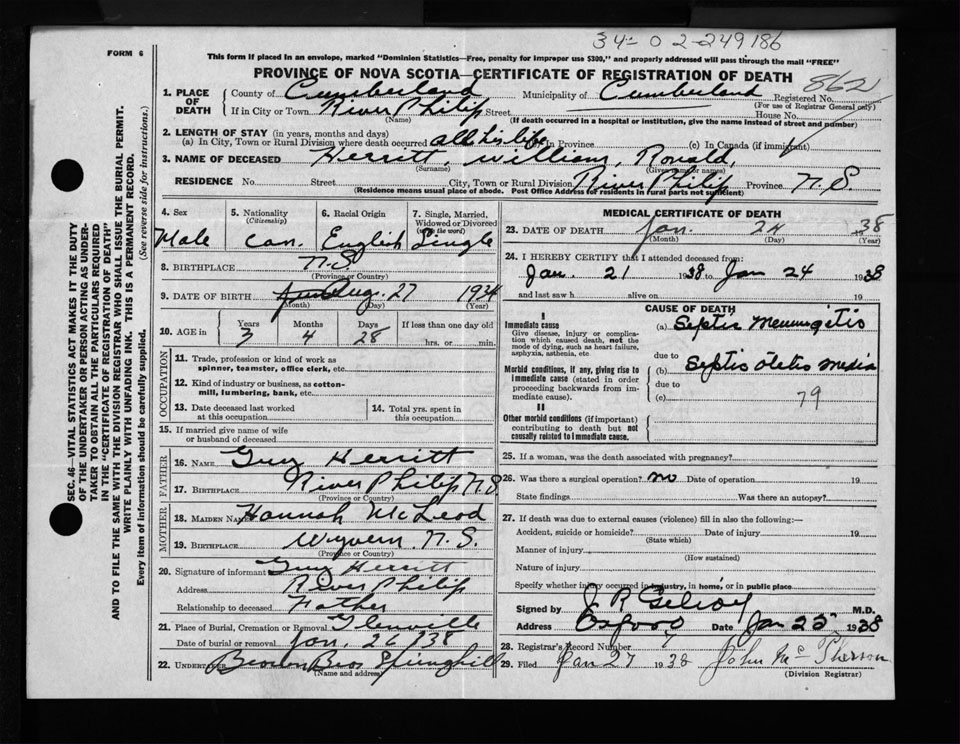 34-02-249186
FORM 6
This form if placed in an envelope, marked "Dominion Statistics—Free, penalty for improper use $300," and properly addressed will pass through the mail "FREE"
PROVINCE OF NOVA SCOTIA—CERTIFICATE OF REGISTRATION OF DEATH
862
1. PLACE OF DEATH County of Cumberland Municipality of Cumberland Registered No.
(For use of Registrar General only)
If in City or Town River Philip Street House No.
(Name) (If death occurred in a hospital or institution, give the name instead of street and number)
2. LENGTH OF STAY (in years, months and days)
(a) In City, Town or Rural Division where death occurred all his life In Province (c) In Canada (if immigrant)
3. NAME OF DECEASED Herritt, William, Ronald,
(Surname) (Given name or names)
RESIDENCE No. Street City, Town or Rural Division River Philip Province N.S
(Residence means usual place of abode. Post Office Address for residents in rural parts not sufficient)
4. Sex 5. Nationality (Citizenship) 6. Racial Origin 7. Single, Married, Widowed or Divorced (write the word)
Male Can. English Single
8. BIRTHPLACE N.S
(Province or Country)
9. DATE OF BIRTH Aug. 27 1934
(Month) (Day) (Year)
10. AGE in Years Months Days If less than one day old
3 4 28 hrs. or min.
OCCUPATION
11. Trade, profession or kind of work as spinner, teamster, office clerk, etc.
12. Kind of industry or business, as cotton-mill, lumbering, bank, etc.
13. Date deceased last worked at this occupation
14. Total yrs. spent in this occupation
15. If married give name of wife or husband of deceased
FATHER
16. NAME Guy Herritt
17. BIRTHPLACE River Philip N.S.
(Province or Country)
MOTHER
18. MAIDEN NAME Hannah McLeod
19. BIRTHPLACE Wyvern. N.S.
(Province or Country)
20. Signature of informant Guy Herritt
Address River Philip
Relationship to deceased Father
21. Place of Burial, Cremation or Removal Glenville
Date of burial or removal Jan. 26/38
22. UNDERTAKER Bros Springhill
(Name and address)
MEDICAL CERTIFICATE OF DEATH
23. DATE OF DEATH Jan. 24 1938
(Month) (Day) (Year)
24. I HEREBY CERTIFY that I attended deceased from
Jan. 21 1938 to Jan 24 1938
and last saw h alive on 19
CAUSE OF DEATH
I
Immediate cause
Give disease, injury or complication which caused death, not the mode of dying, such as heart failure, asphyxia, asthenia, etc
(a) Septic Meningitis
due to
Morbid conditions, if any, giving rise to immediate cause (stated in order proceeding backwards from immediate cause).
(b) Septic Otitis media
due to
(c)
79
II
Other morbid conditions (if important) contributing to death but not causally related to immediate cause.
25. If a woman, was the death associated with pregnancy?
26. Was there a surgical operation? no Date of operation 19
State findings Was there an autopsy?
27. If death was due to external causes (violence) fill in also the following:—
Accident, suicide or homicide? Date of injury 19
(State which)
Manner of injury
(How sustained)
Nature of injury
Specify whether injury occurred in industry, in home, or in public place
Signed by J R Gilroy M.D.
Address Oxford Date Jan 25 1938
28. Registrar's Record Number 4
29. Filed Jan 27 1938 John McPherson
(Division Registrar)
SEC. 46—VITAL STATISTICS ACT MAKES IT THE DUTY
OF THE UNDERTAKER OR PERSON ACTING AS UNDER-
TAKER TO OBTAIN ALL THE PARTICULARS REQUIRED
IN THE "CERTIFICATE OF REGISTRATION OF DEATH"
AND TO FILE THE SAME WITH THE DIVISION REGISTRAR WHO SHALL ISSUE THE BURIAL PERMIT.
WRITE PLAINLY WITH UNFADING INK. THIS IS A PERMANENT RECORD.
Every item of information should be carefully supplied. (See reverse side for instructions.)